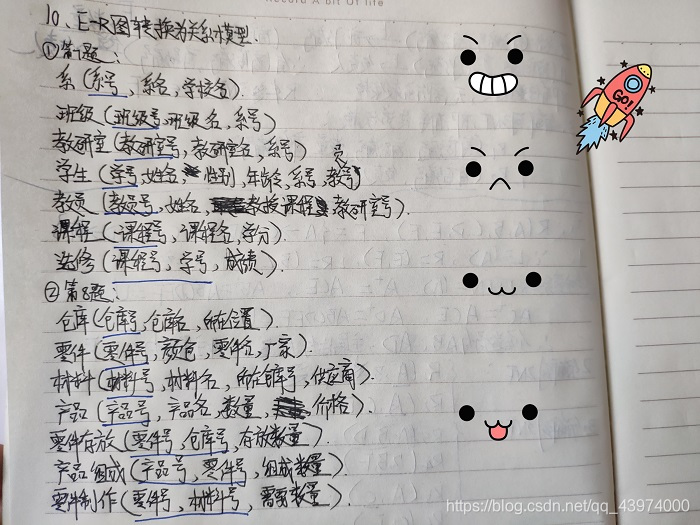 Record A bit Of life
10、E-R图转换为关系模型.
①第7题:
系(系号,系名,学校名).
班级(班级号,班级名,系号)
教研室(教研室号,教研室名,系号)
学生(学号,姓名,性别,年龄,系号,教员号)
教员(教员号,姓名,教授课程,教研室号).
课程(课程号,课程名,学分).
选修(课程号,学号,成绩).
②第8题:
仓库(仓库号,仓库名,所在位置).
零件(零件号,颜色,零件名,厂家).
材料(材料号,材料名,所在仓库号,供应商).
产品(产品号,产品名,数量,价格).
零件存放(零件号,仓库号,存放数量).
产品组成(产品号,零件号,组成数量).
零件制作(零件号,材料号,需要数量).
GO!
https://blog.csdn.net/qq_43974000